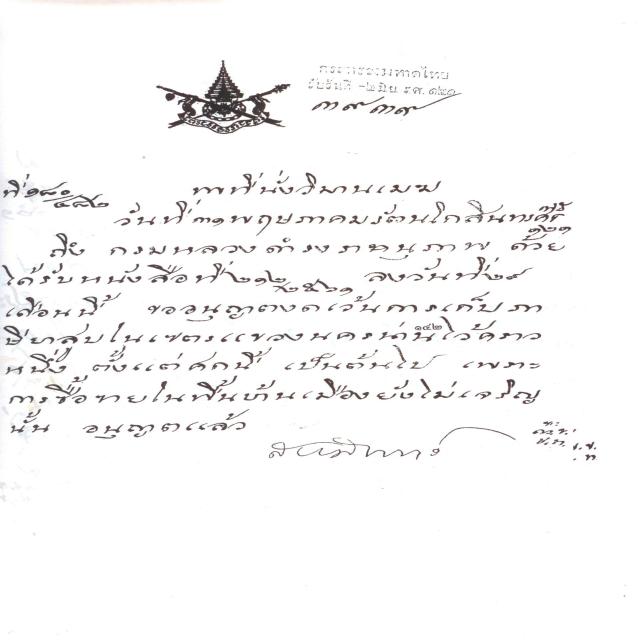 กระทรวงมหาดไทย
รับวันที่ -๒ มิย รศ. ๑๒๑
๓๙๓๙
ที่ ๑๘๐/๔๘๒
พที่นั่งวิมานเมฆ
วันที่ ๓๑ พฤษภาคม รัตนโกสินทรศก ๑๒๑
ถึง กรมหลวงดำรงราชานุภาพ ด้วย
ได้รับหนังสือที่ ๒๑๒/๒๕๖๑ ลงวันที่ ๒๙
เดือนนี้ ขออนุญาตงดเว้นการเก็บภา
ษียาสูบในเขตรแขวงนครน่านไว้คราว
หนึ่ง ตั้งแต่ศกนี้ เป็นต้นไป เพราะ
การซื้อขายในพื้นบ้านเมืองยังไม่เจริญ
นั้น อนุญาตแล้ว